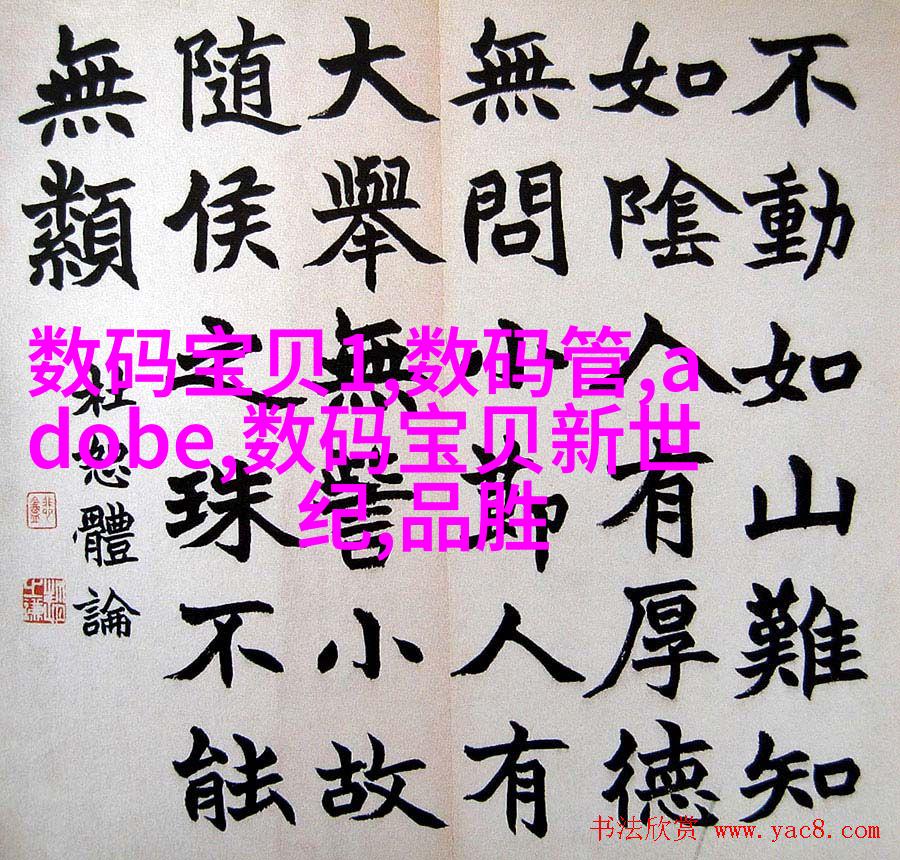 不動如山難知
如陰人有厚德
無問小節人有
大舉無小故
隨侯之珠不能
無纇
杜恕體論
数码宝贝1,数码管,a
dobe,数码宝贝新世
纪,品胜
书法欣赏 www.yac8.com